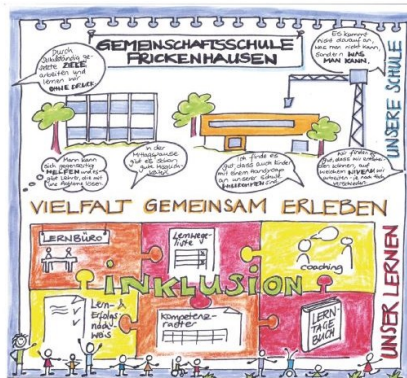 GEMEINSCHAFTSSCHULE
FRICKENHAUSEN
Durch
selbstständig ge-
setzte ZIELE
arbeiten und
lernen wir
OHNE DRUCK
Es kommt
nicht darauf an,
was man nicht kann,
sondern WAS
MAN KANN.
UNSERE SCHULE
Mann kann
sich gegenseitig
HELFEN und es
gibt Lehrer, die mit
uns Probleme lösen.
In der
Mittagspause
gibt es schon
gute Möglich-
keiten!
Ich finde es
gut, dass auch Kinder
mit einem Handycap
an unserer Schule
WILLKOMMEN sind.
Wir finden es
gut, dass wir entschei-
den können, auf
welchem NIVEAU wir
arbeiten - je nach Fach
verschieden.
VIELFALT GEMEINSAM ERLEBEN
LERNBÜRO
Lernwege-
liste
coaching
INKLUSION
Lern-
Erfolgs
nach-
weis
Kompetenz-
raster
LERN-
TAGE
BUCH
UNSER LERNEN